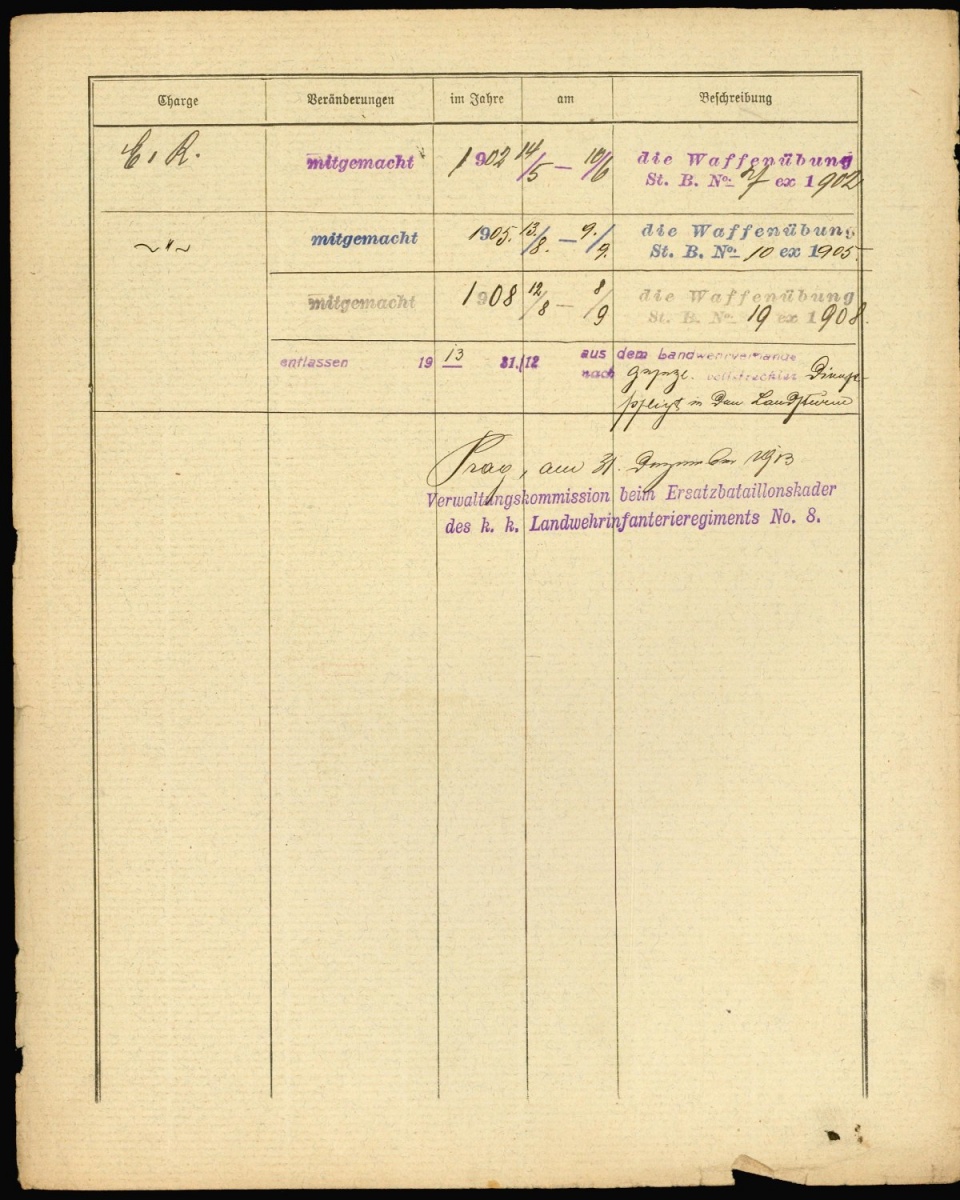 Charge Veränderungen im Jahre am Beschreibung
E. R. mitgemacht 1902 14/5 — 10/6 die Waffenübung
St. B. No: 7 ex 1902
~ " ~ mitgemacht 1905. 13./8. — 9./9. die Waffenübung
St. B. No: 10 ex 1905
mitgemacht 1908 12/8 — 8/9 die Waffenübung
St. B. No: 19 ex 1908.
entlassen 1913 31./12 aus dem Landwehrverbande
nach vollstreckter Dienst-
pflicht in den Landsturm
Prag, am 31. Dezember 1913
Verwaltungskommission beim Ersatzbataillonskader
des k. k. Landwehrinfanterieregiments No. 8.